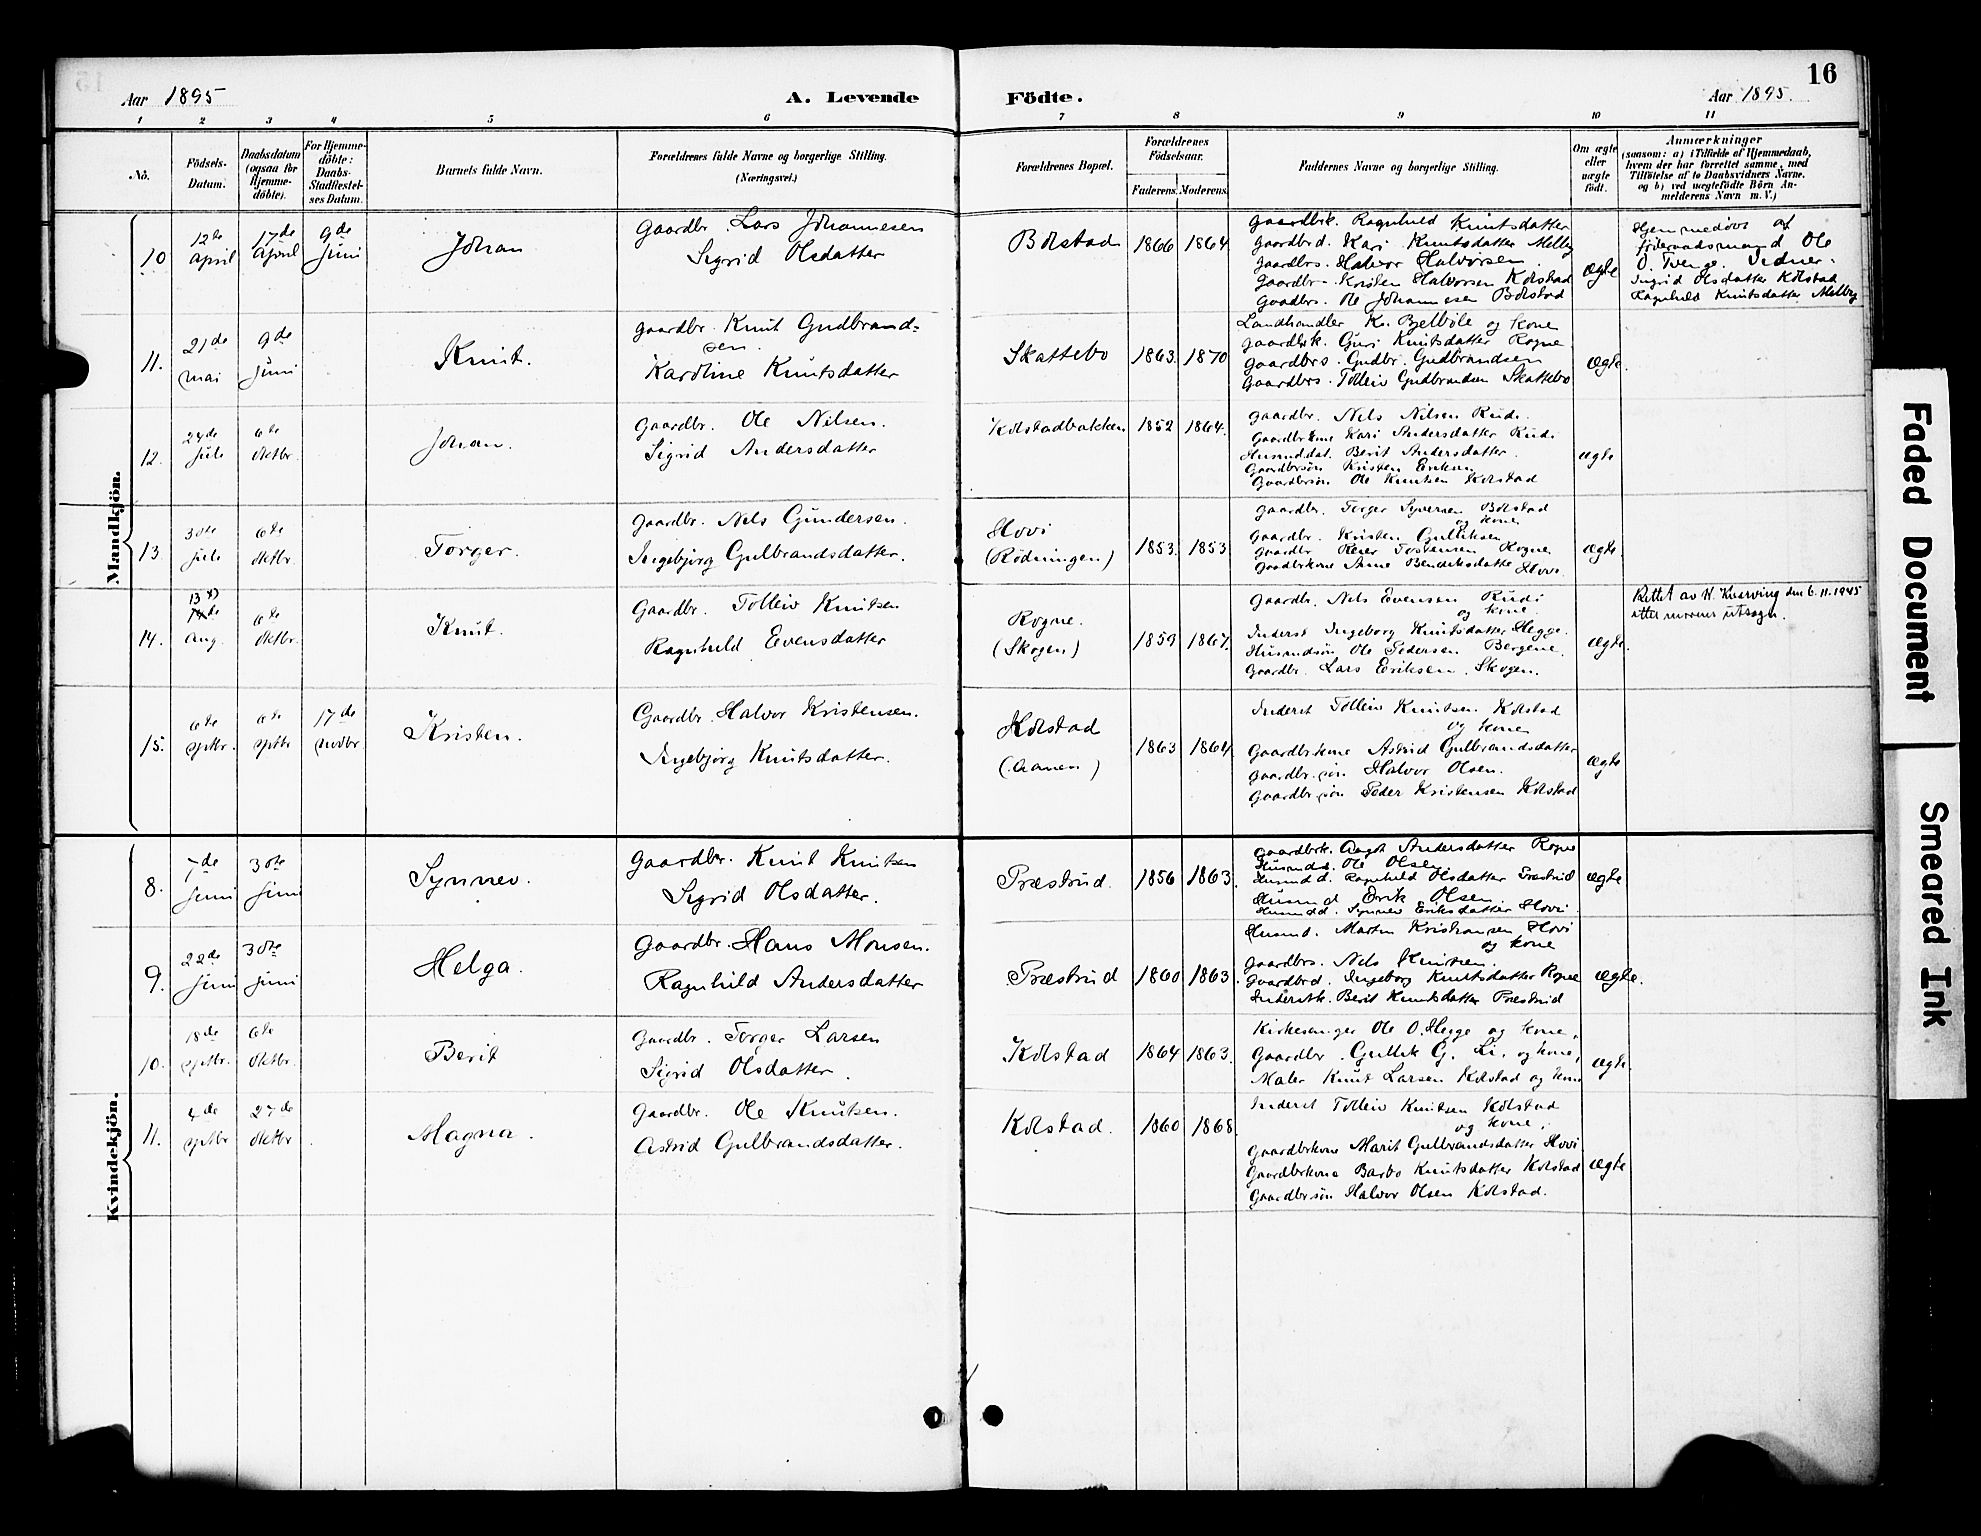 16
Aar 1895 A. Levende Födte. Aar 1895.
1 2 3 4 5 6 7 8 9 10 11
No.
Födsels-Datum.
Daabsdatum (ogsaa for Hjemme-döbte).
For Hjemme-döbte: Daabs-Stadfæstel-ses Datum.
Barnets fulde Navn.
Forældrenes fulde Navne og borgerlige Stilling.
(Næringsvei.)
Forældrenes Bopæl.
Forældrenes Födselsaar.
Faderens. Moderens.
Faddernes Navne og borgerlige Stilling.
Om ægte eller uægte födt.
Anmærkninger
(saasom: a) i Tilfælde af Hjemmedaab,
hvem der har forrettet samme, med
Tilföielse af to Daabsvidners Navne.
og b) ved uægtefödte Börn An-
melderens Navn m. V.)
Mandkjön.
10. 12te April 17de April 9de Juni Johan
Gaardbr. Lars Johannesen
Sigrid Olsdatter
Bolstad 1866 1864
Gaardbrk. Ragnhild Knutsdatter
Gaardbrd. Kari Knutsdatter Melby
Gaardbrs. Halvor Halvorsen
Gaardbr. Kristen Halvorsen Kolstad
Gaadbrs. Ole Johannesen Bolstad
ægte
Hjemmedöbt af
Föderaadsmand Ole
O. Tvenge. Vidner:
Ingrid Olsdatter Kolstad
Ragnhild Knutsdatter Melby
11. 21de Mai 9de Juni Knut.
Gaardbr. Knut Gudbrand-
sen
Karoline Knutsdatter
Skattebo 1863. 1870
Landhandler K. Bjelböle og kone
Gaardbrk. Guri Knutsdatter Rogne
Gaardbrs. Gudbr. Gudbrandsen
Gaardbrs. Tolleiv Gudbrandsen Skattebo
ægte.
12. 24de Juli 6te Oktbr. Johan.
Gaardbr. Ole Nilsen.
Sigrid Andersdatter
Kolstadbakken 1852 1864.
Gaardbr. Nils Nilsen Rudi.
Gaardbrkone Kari Andersdatter Rudi
Husmd.dat. Berit Andersdatter.
Gaardbrsön Kristen Eriksen
Gaardbrsön Ole Knutsen Kolstad
ægte
13. 30te Juli 6te Oktbr. Torger.
Gaardbr. Nils Gundersen.
Ingebjörg Gulbrandsdatter.
Hovi
(Rödningen)
1853. 1853
Gaardbr. Torger Syversen Bolstad
og kone
Gaardbr. Kristen Gulliksen
Gaardbr Reier Tostensen Rogne
Gaardbrkone Anne Bendiksdatter Hovi.
ægte.
14. 13 14de Aug. 6te Oktbr. Knut.
Gaardbr. Tolleiv Knutsen
Ragnhild Evensdatter
Rogne.
(Skogen)
1859 1867.
Gaardbr. Nils Evensen Rudi
og kone.
Inderst Ingeborg Knutsdatter Hegge.
Husmandsön Ole Pedersen Bergene.
Gaardbr. Lars Eriksen Skogen.
ægte.
Rettet av K. Kværving den 6.11.1945
etter utsagn.
15. 6te Sptbr. 6te Sptbr 17de Novbr. Kristen.
Gaardbr. Halvor Kristensen.
Ingebjörg Knutsdatter.
Kolstad
(Aanen)
1863 1864
Inderst Tolleiv Knutsen Kolstad
og kone
Gaardbrkone Astrid Gulbrandsdatter
Gaardbr.sön Halvor Olsen.
Gaardbr.sön Peder Kristensen Kolstad
ægte
Kvindekjön.
8. 7de Juni 30te Juni Synnev.
Gaardbr. Knut Knutsen
Sigrid Olsdatter.
Præstrud. 1856 1863.
Gaardbrk. Aagot Andersdatter Rogne
Husmds. Ole Olsen
Husmdd. Ragnhild Olsdatter Præstrud
Husmd Erik Olsen
Husmdd. Synnev Eriksdatter Hovi
ægte
9. 22de Juni 30te Juni Helga.
Gaardbr. Hans Monsen.
Ragnhild Andersdatter
Præstrud 1860 1863.
Husmd. Martin Kristiansen Hovi
og kone
Gaardbrs. Nils Knutsen.
Gaardbrd. Ingeborg Knutsdatter Rogne
Inderstk. Berit Knutsdatter Præstrud
ægte.
10. 18de Sptbr. 6te Oktbr. Berit
Gaardbr. Torger Larsen
Sigrid Olsdatter.
Kolstad 1864 1863.
Kirkesanger Ole O. Hegge og kone,
Gaardbr. Gullik G. Li, og kone,
Maler Knut Larsen Kolstad og kone
ægte.
11. 4de Sptbr 27de Oktbr Magna.
Gaardbr. Ole Knutsen.
Astrid Gulbrandsdatter.
Kolstad. 1860 1868.
Inderst Tolleiv Knutsen Kolstad
og kone,
Gaardbrkone Marit Gulbrandsdatter Hovi
Gaardbrkone Barbo Knutsdatter Kolstad
Gaardbrsön Halvor Olsen Kolstad.
ægte
Faded Document
Smeared Ink